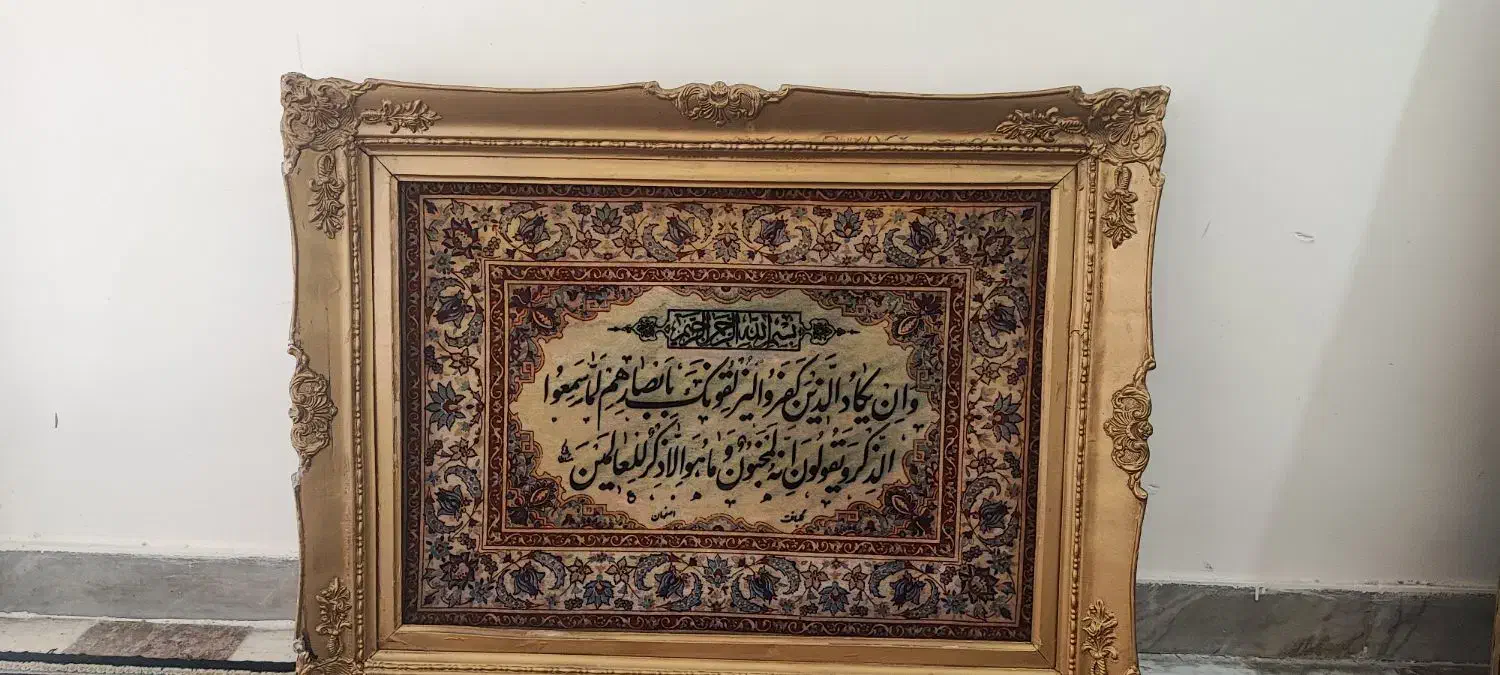 بسم الله الرحمن الرحیم
وَاِن یَکادُ الَّذینَ کَفَرُوا لَیُزلِقُونَکَ بِاَبصارِهِم لَمّا سَمِعُوا
الذِکرَ وَ یَقُولُونَ اِنَّهُ لَمَجنُونٌ وَ ما هُوَ اِلّا ذِکرٌ لِلعالَمینَ
اصفهان